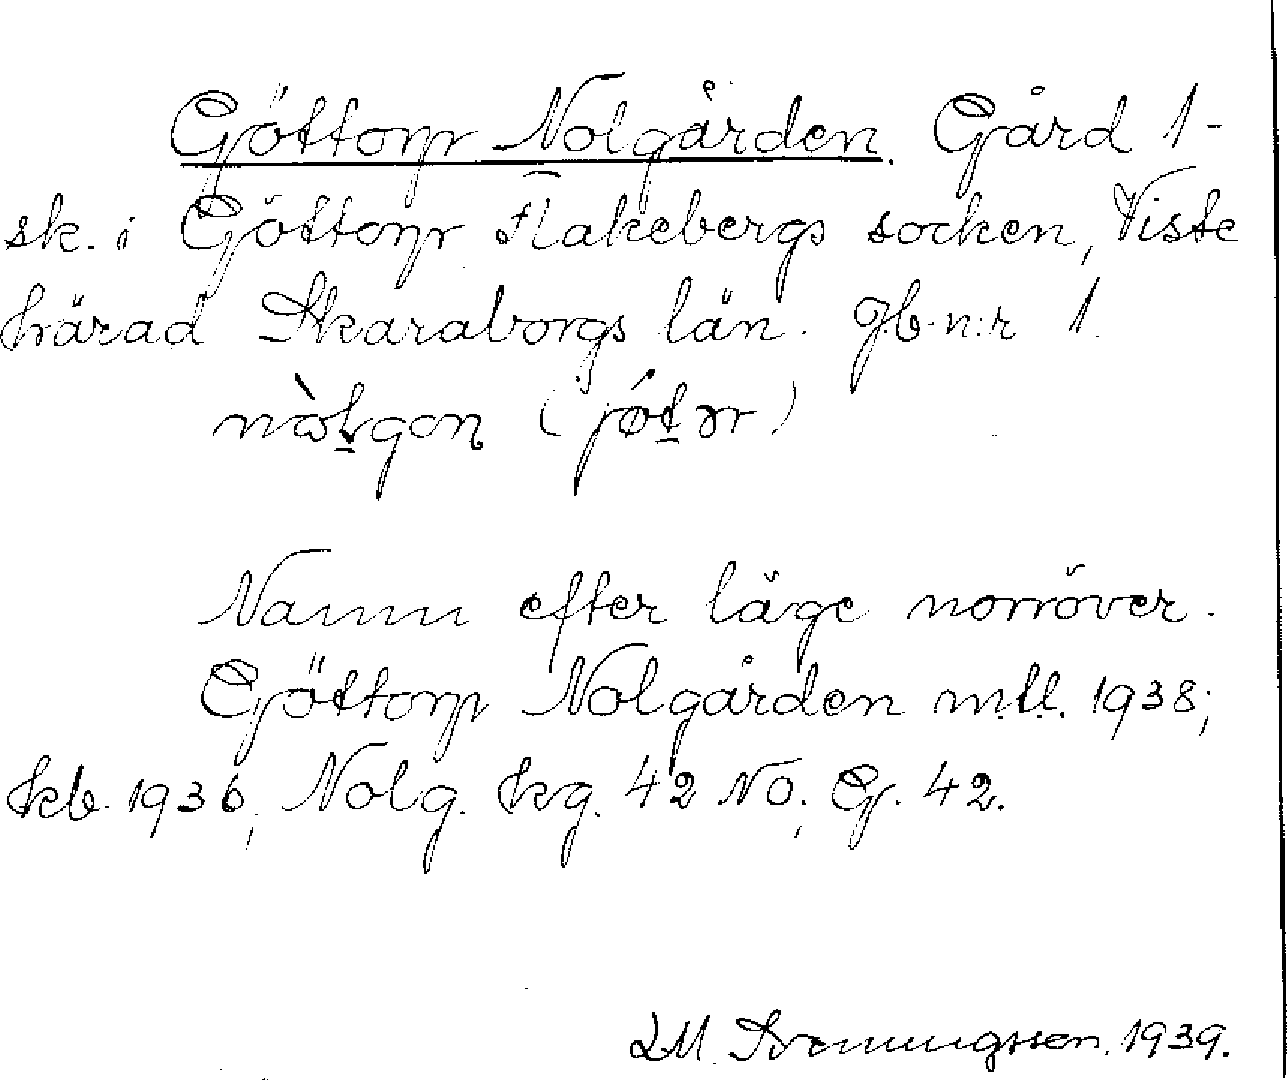 Göttorp Nolgården. Gård 1-
sk. i Göttorp Flakebergs socken, Viste
härad Skaraborgs län. Jb. n:r 1.
nòłgoɳ (jǿtər)
Namn efter läge norröver.
Göttorp Nolgården m.ll. 1938;
kb. 1936; Nolg. kg. 42 NO; G. 42.
LM. Svenungsson. 1939.